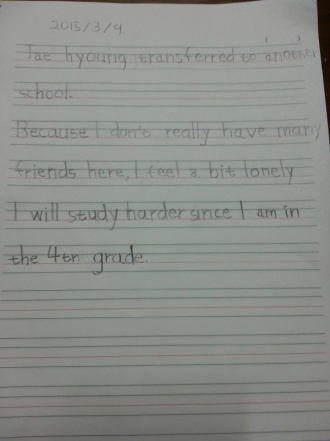 2015/3/9
Jae hyoung transferred to another
school.
Because I don't really have many
friends here, I feel a bit lonely
I will study harder since I am in
the 4th grade.